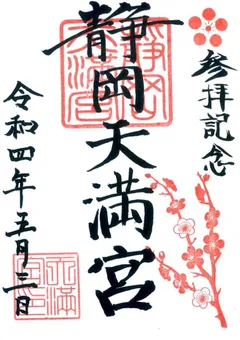 参拝記念
静岡天満宮
令和四年五月三日